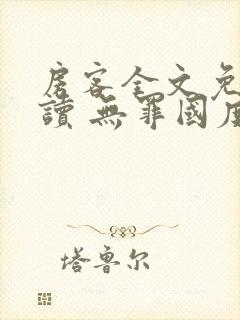 房客全文免
讀 無罪國度
塔魯尔